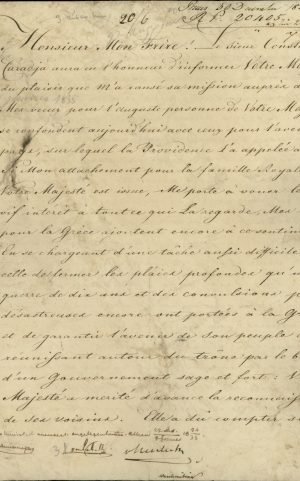 206
Monsieur Mon Frère! Le sieur Const
Caradja aura eu l'honneur d'informer Votre Ma
du plaisir que M'a causé sa mission auprès d
Mes vœux pour l'auguste personne de Votre Ma
se confondent aujourd'hui avec ceux pour l'ave
pays, sur lequel la Providence l'a appelée à
Si Mon attachement pour la famille Royale
Votre Majesté est issue, Me porte à vouer le
vif intérêt à tout ce qui la regarde, Mes
pour la Grèce ajoutent encore à ce sentim
En se chargeant d'une tâche aussi difficile
celle de fermer les plaies profondes qu'u
guerre de dix ans et des convulsions p
désastreuses encore ont portées à la G
et de garantir l'avenir de son peuple
réunissant autour du trône par le b
d'un Gouvernement sage et fort: V
Majesté a mérité d'avance la reconnaiss
de ses voisins. Elle a dû compter s